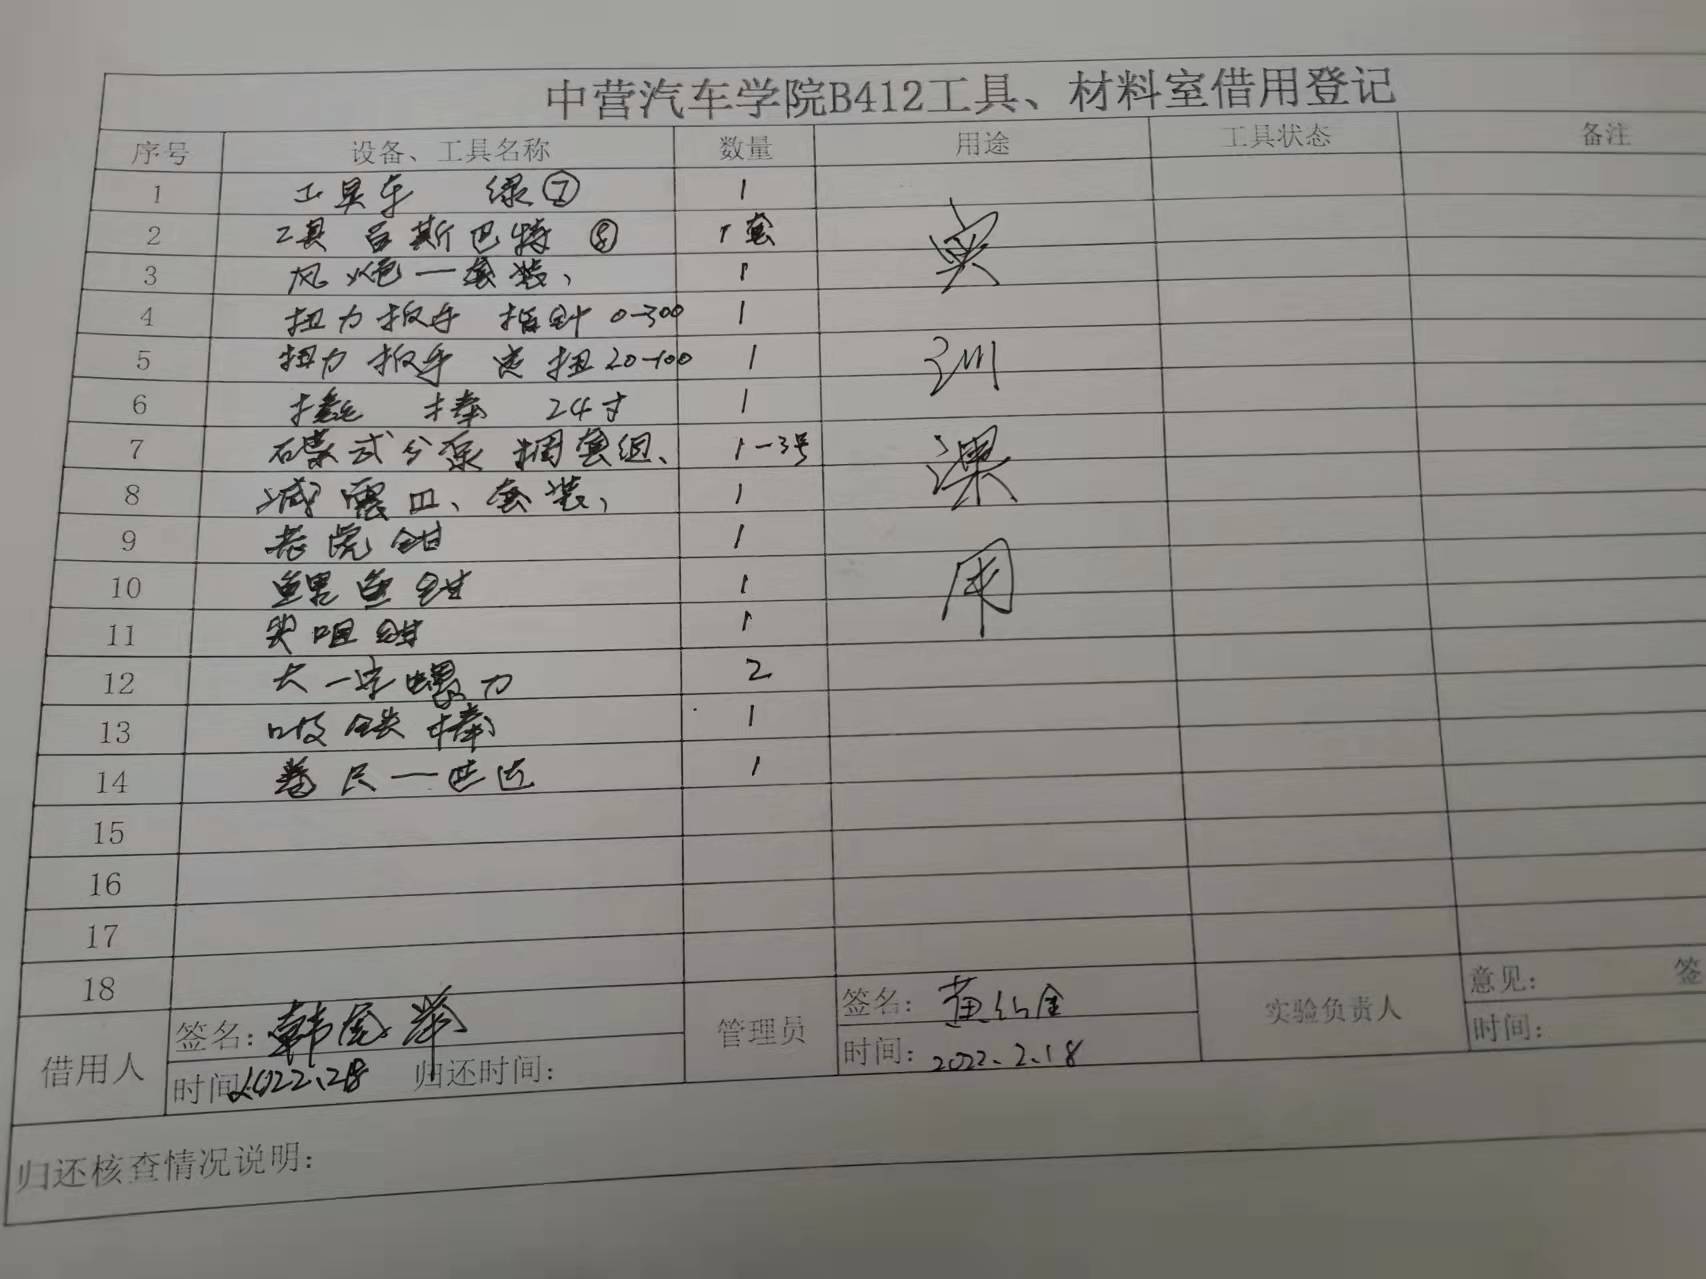 中营汽车学院B412工具、材料室借用登记
序号 设备、工具名称 数量 用途 工具状态 备注
1 工具车 绿⑦ 1
2 工具 百斯巴特 ⑧ 1套
3 风炮一套装、 1
4 扭力扳手 指针 0-300 1
5 扭力扳手 定扭20-100 1
6 撬棒 24寸 1
7 碟式分泵调套组、 1-3号
8 减震皿、套装、 1
9 老虎钳 1
10 鲤鱼钳 1
11 尖咀钳 1
12 大一字螺刀 2
13 吸铁棒 1
14 卷尺一 1
实训课用
15
16
17
18
借用人 签名: 韩 管理员 签名: 黄 金 实验负责人 意见: 签
时间 2022.2.18 归还时间: 时间: 2022.2.18 时间:
归还核查情况说明: